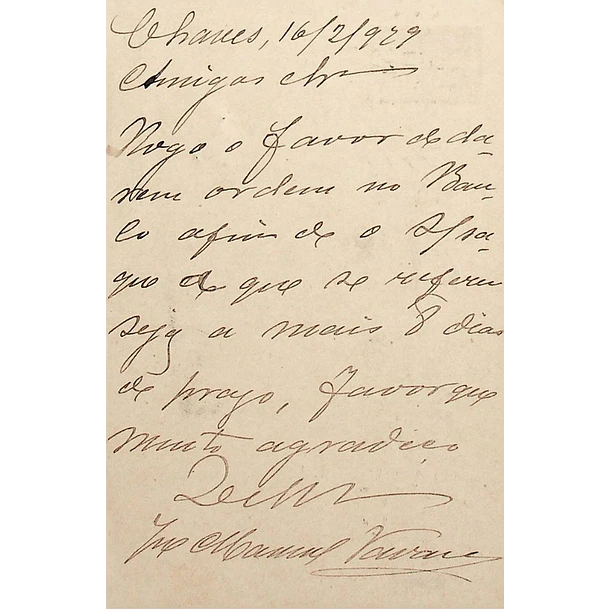 Chaves, 16/2/929
Amigos
Rogo o favor de da-
rem ordem no Ban-
co afim de o s/sa-
que de que se referem
seja a mais 8 dias
de prazo, favor que
muito agradeço
Manuel